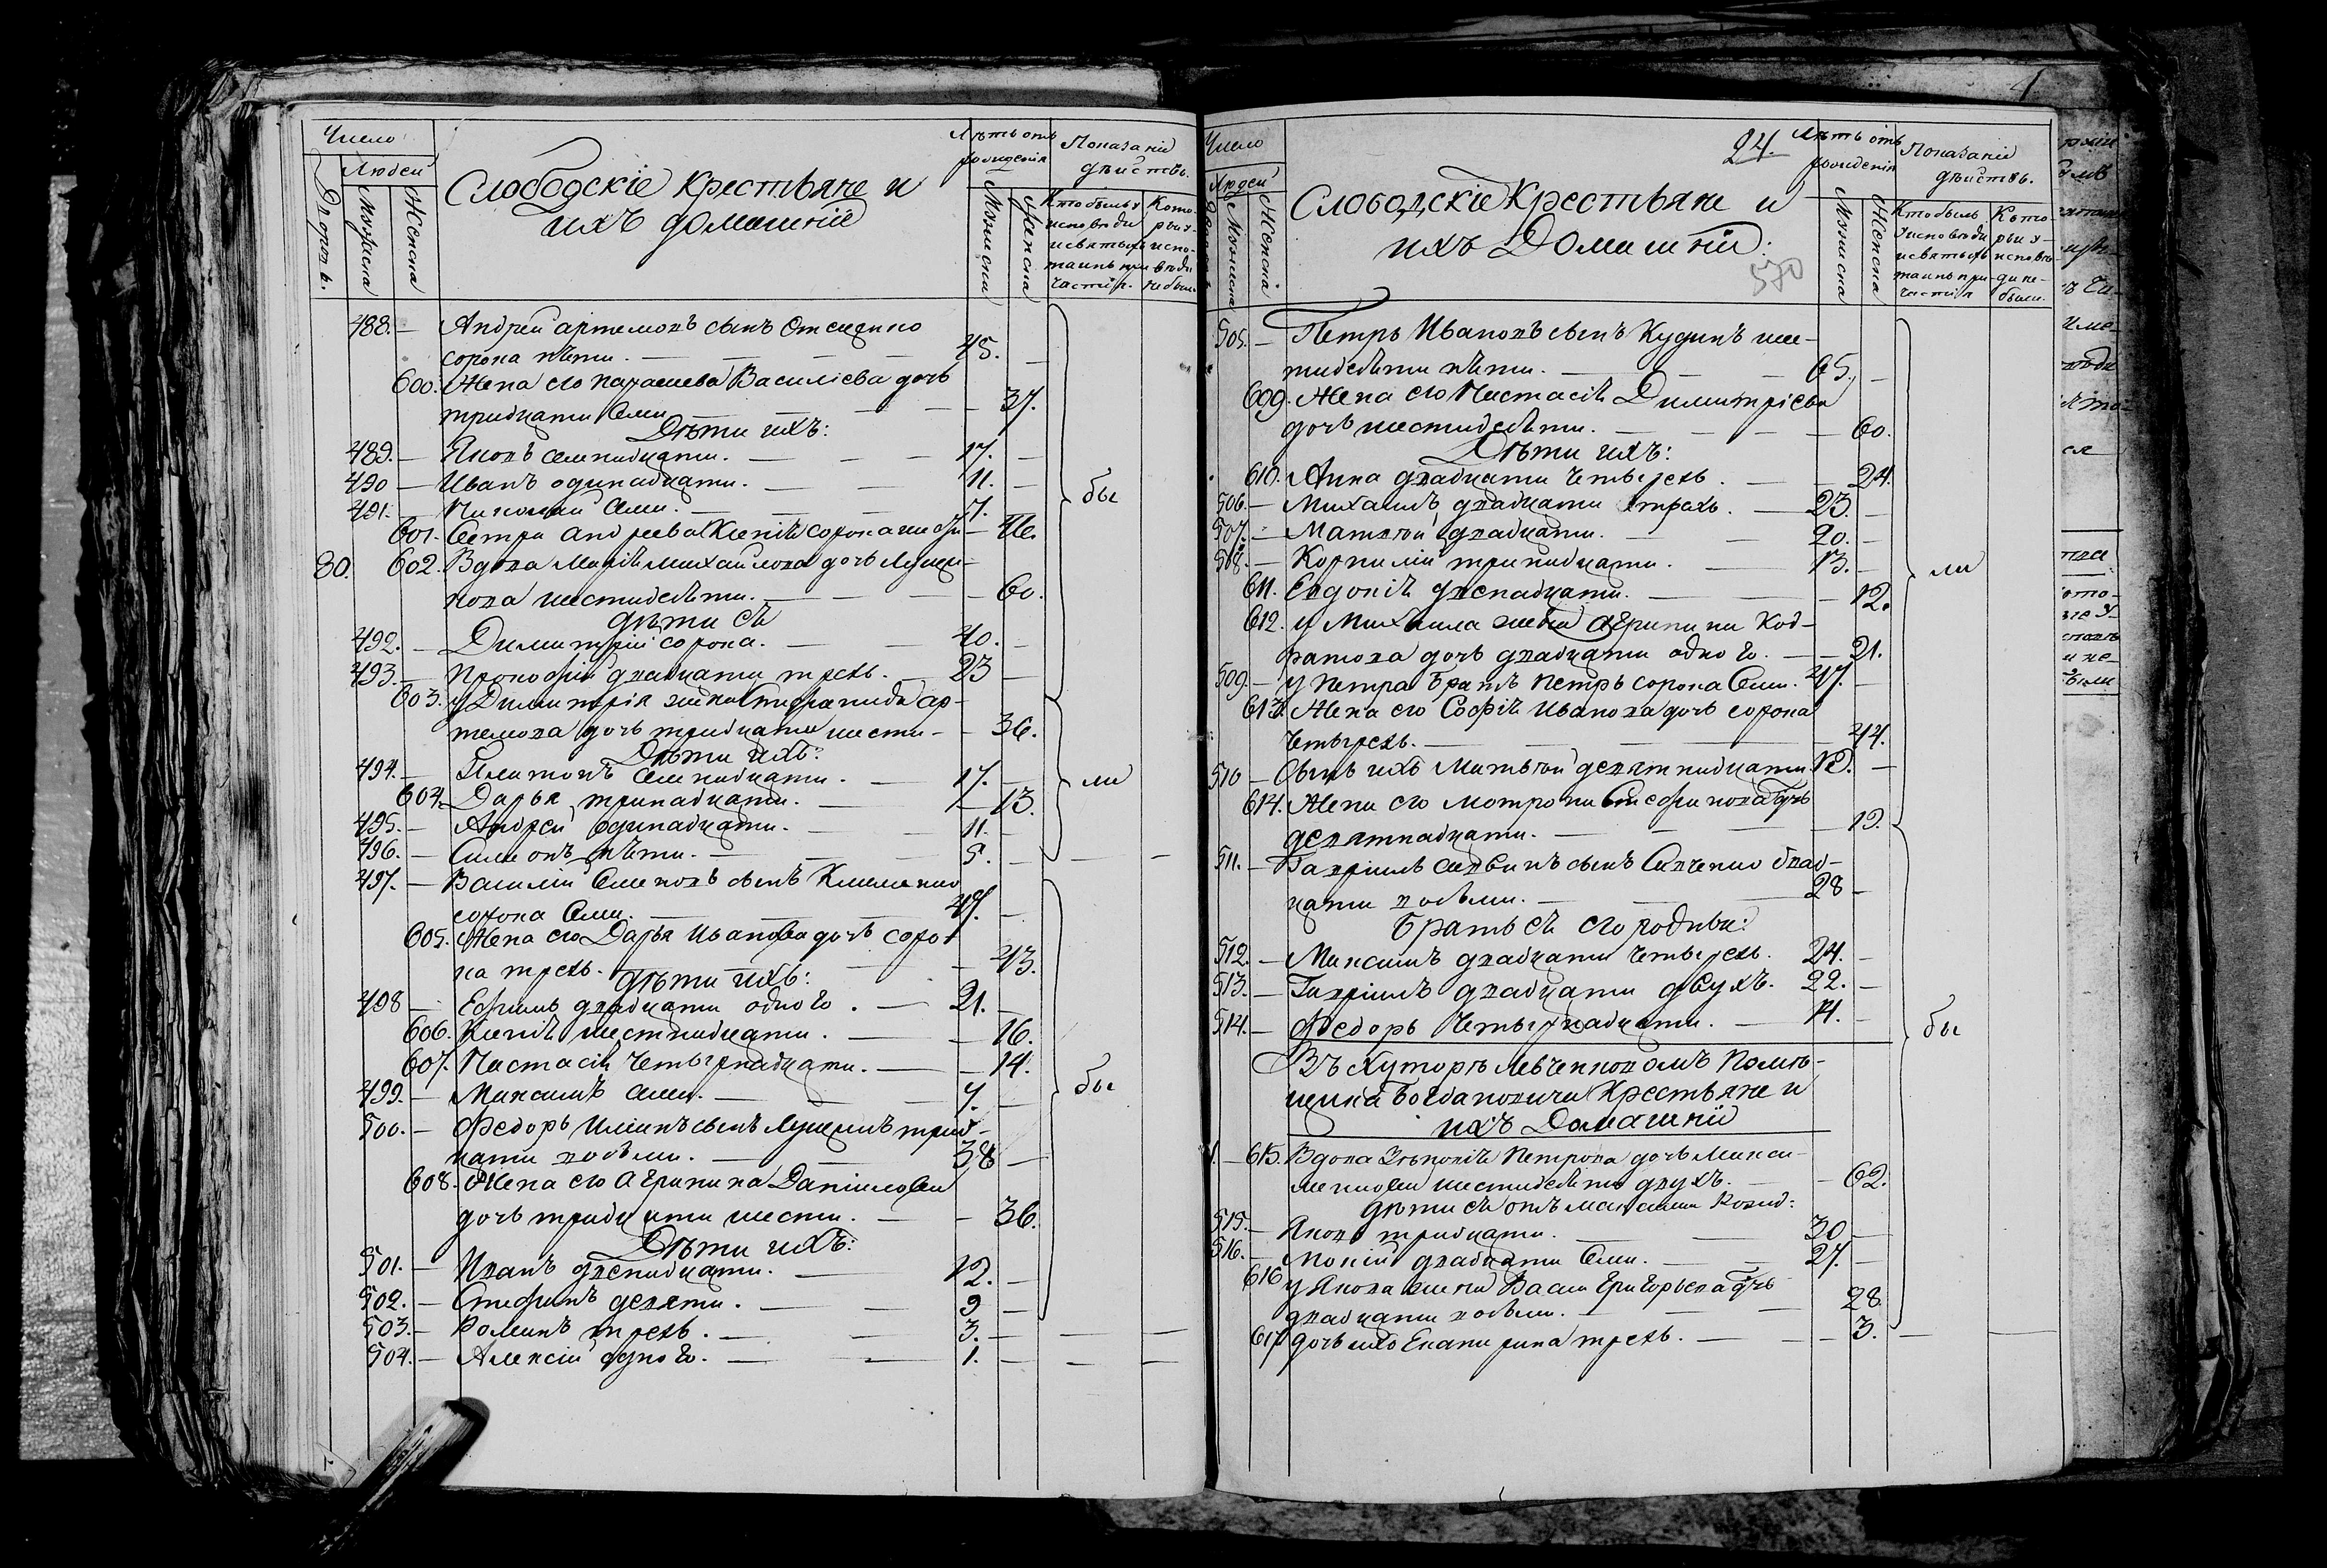 Число
Людей
Дворовъ.
Мужеска
Женска
Слободскіе крестьяне и
ихъ домашніе
Лѣтъ отъ
рожденія
Мужеска
Женска
Показаніе
дѣйствъ.
Кто былъ у
исповѣди
и святыхъ
таинъ при
частія.
Кото-
рые у
испо-
вѣди
не были.
488. — Андрей Артемовъ сынъ
сорока пѣти. — 45. —
600. Жена его Параскева Василіева дочь
тридцати семи — 37.
Дѣти ихъ:
489. — Яковъ семнадцати. — 17. —
490 — Иванъ одинадцати. — 11. —
491. — Николай семи. — 7. —
601. Сестра Андреева Ксенія сорока —
80. 602. Вдова Марія Михайлова дочь Лущи-
кова шестидесѣти. — 60.
дѣти еѣ
492. — Димитрій сорока. — 40. —
493. — Прокофій двадцати трехъ. — 23 —
603. у Димитрія жена Стефанида Ар-
темова дочь тридцати шести — 36.
Дѣти ихъ:
494. — Платонъ семнадцати. — 17. —
604. Дарья тринадцати. — 13.
495. — Андрей одинадцати. — 11. —
496. — Симеонъ пѣти. — 5. —
497. — Василій Семеновъ сынъ Клименко
сорока семи. — 47. —
605. Жена его Дарья Иванова дочь соро-
ка трехъ. — 43.
дѣти ихъ:
498 — Ефимъ двадцати одного. — 21. —
606. Ксенія шестнадцати. — 16.
607. Настасія четырнадцати. — 14.
499. — Максимъ семи. — 7. —
500. — Федоръ Иліинъ сынъ Лущикъ трид-
цати восьми. — 38 —
608. Жена его Агрипина Даніилова
дочь тридцати шести. — 36.
Дѣти ихъ:
501. — Иванъ двенадцати. — 12. —
502. — Стефанъ девяти. — 9 —
503. — Романъ трехъ. — 3. —
504. — Алексій одного. — 1. —
бы
ли
бы
Число
Людей
Мужеска
Женска
24.
Слободскіе Крестьяне и
ихъ Домашніе:
570
Лѣтъ отъ
рожденія
Мужеска
Женска
Показаніе
дѣйствъ.
Кто былъ
у исповѣди
и святыхъ
таинъ при-
частія
Като-
рые у
исповѣ-
ди не-
были.
505. — Петръ Ивановъ сынъ Кудинъ шес-
тидесѣти пѣти. — 65. —
609. Жена его Настасія Димитріева
дочь шестидесѣти. — 60.
Дѣти ихъ:
610. Анна двадцати четырехъ. — 24.
506. — Михаилъ двадцати трехъ. — 23. —
507. — Матвей двадцати. — 20. —
508. — Корнилій тринадцати. — 13. —
611. Евдокія двенадцати. — 12.
612. у Михаила жена Агрипина Код-
ратова дочь двадцати одного. — 21.
509. — у Петра братъ Петръ сорока семи. 47. —
613. Жена его Софія Иванова дочь сорока
четырехъ. — 44.
510 — Сынъ ихъ Матвей девятнадцати. 19. —
614. Жена его Мотрона Стефанова дочь
девятнадцати. — 19.
511. — Гавріилъ сынъ Савченко двад-
цати восьми. — 28 —
Братьѣ его родные:
512. — Максимъ двадцати четырехъ. 24. —
513. — Гавріилъ двадцати двухъ. 22. —
514. — Федоръ четырнадцати. — 14. —
Въ Хуторѣ Левченковомъ Помѣ-
щика Богдановича Крестьяне и
ихъ Домашніе
1. — 615. Вдова Зѣновія Петрова дочь Макси-
менкова шестидесѣти двухъ. — 62.
дѣти еѣ отъ
515. — Яковъ тридцати. — 30 —
516. — Мокій двадцати семи. — 27. —
616 у Якова жена Васса Григорьева дочь
двадцати восьми. — 28.
617 дочь ихъ Екатерина трехъ. — 3.
ли
бы